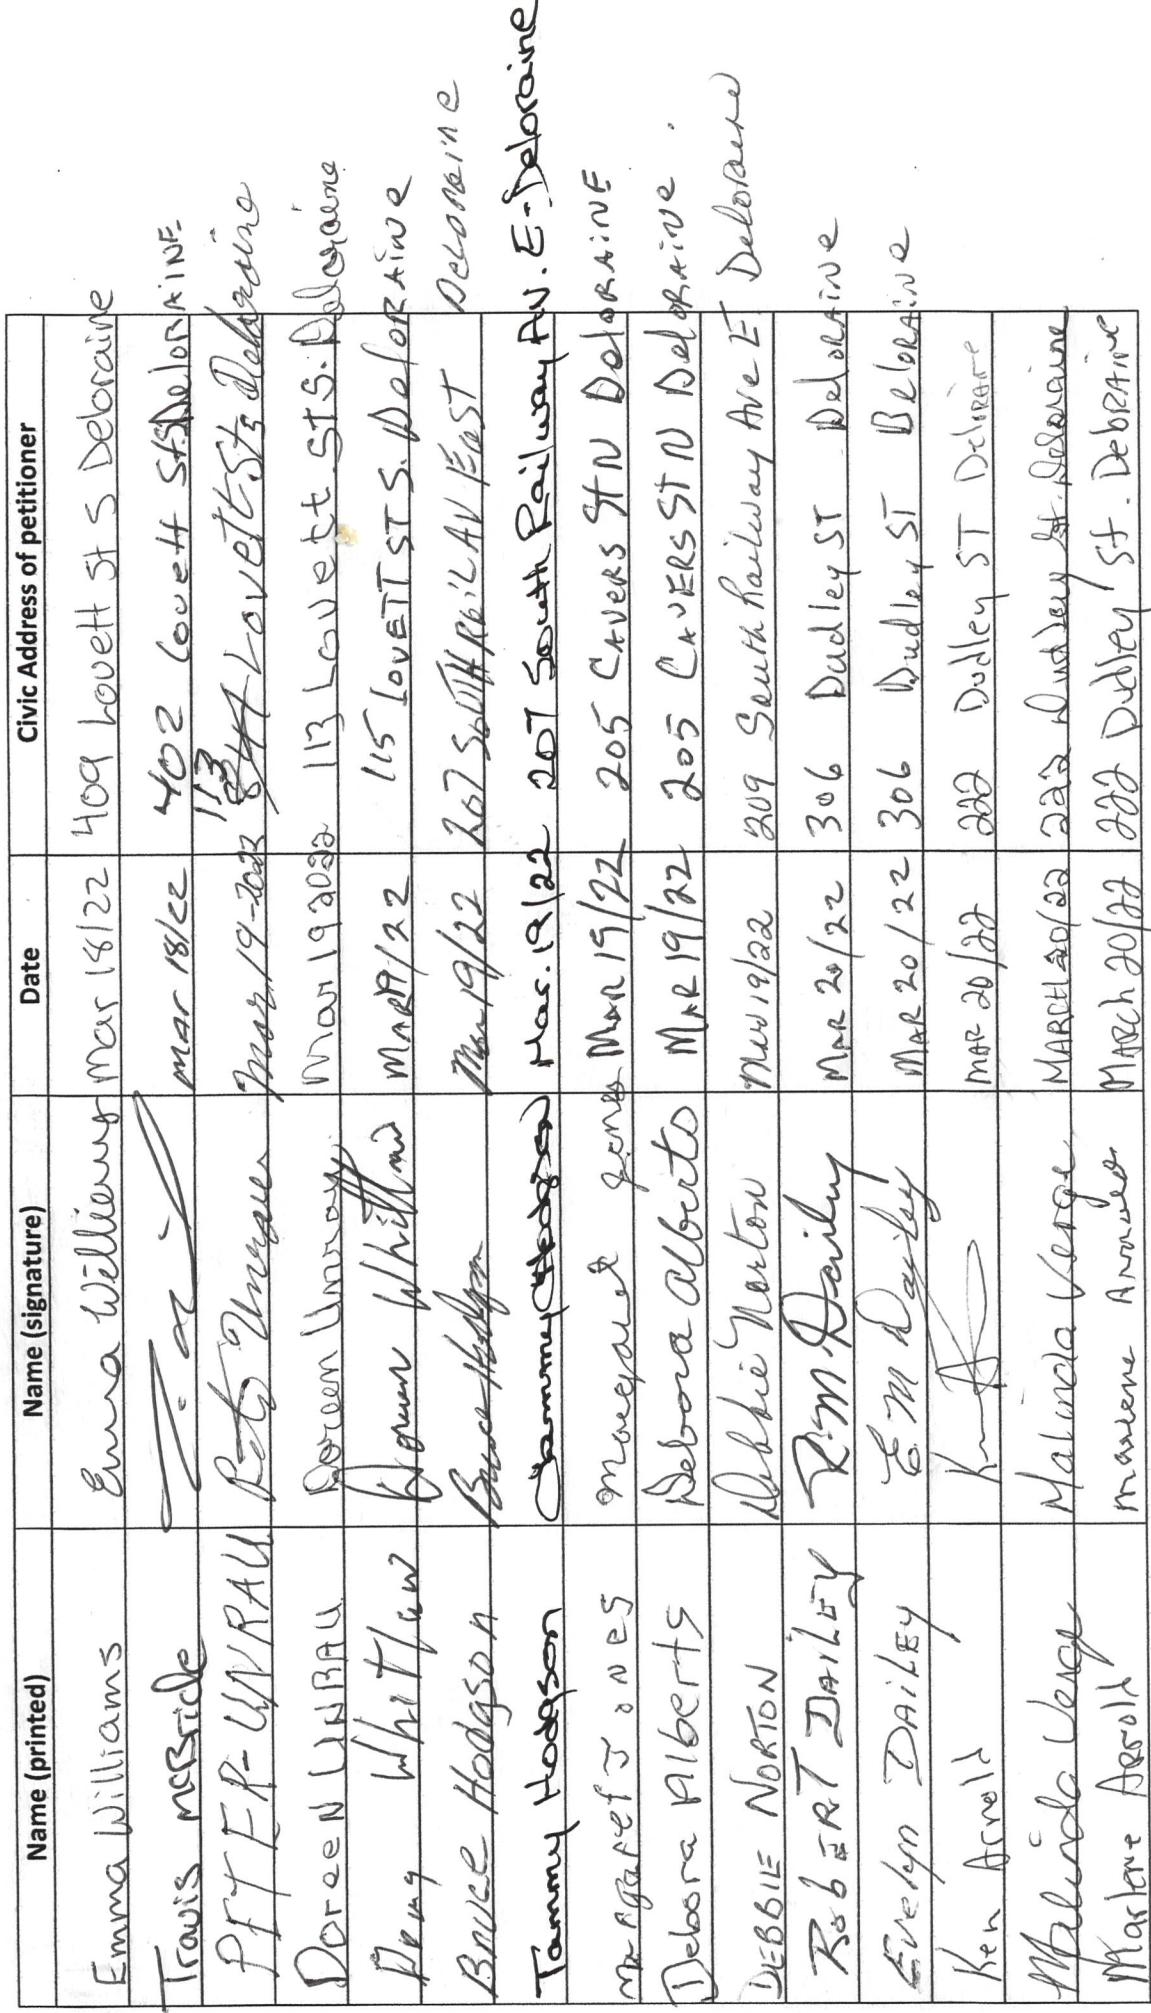 Name (printed) Name (signature) Date Civic Address of petitioner
Emma Williams Emma Williams Mar 18/22 409 Lovett St S Deloraine
Travis McBride mar 18/22 402 Lovett St S Deloraine
PETER UNRAU mar 19-2022 113 Lovett St S Deloraine
DoreeN UNRAU Doreen Unrau Mar 19 2022 113 Lovett St S. Deloraine
Whitlaw MAR 19/22 115 LOVETT ST S. Deloraine
Bruce Hodgson Bruce Hodgson Mar 19/22 207 SOUTH RAIL AV EAST Deloraine
Tammy Hodgson Tammy Hodgson Mar. 19/22 207 South Railway Av. E - Deloraine
Margaret Jones Margaret Jones MAR 19/22 205 CAVERS St N DeloRAINE
Debora Alberts Debora Alberts MAR 19/22 205 CAVERS ST N DeloRAINE.
DEBBIE NORTON Debbie Norton Mar 19/22 209 South Railway Ave E Deloraine
RobERT DAILEY R M Dailey MAR 20/22 306 Dudley ST DeloRAINE
Evelyn DAILEY E M Dailey MAR 20/22 306 Dudley ST DeloRAINE
Ken Arnold MAR 20/22 222 Dudley ST Deloraine
Malinda Verge Malinda Verge MARCH 20/22 222 Dudley St. Deloraine
Marlene Arnold Marlene Arnold MARCH 20/22 222 Dudley St. DeloRAINE